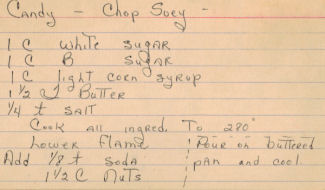 Candy - Chop Suey -
1 C white sugar
1 C B sugar
1 C light corn syrup
1 1/2 C Butter
1/4 t salt
Cook all ingred. To 280°
Lower flame
Add 1/8 t soda
1 1/2 C Nuts
Pour on buttered
pan and cool